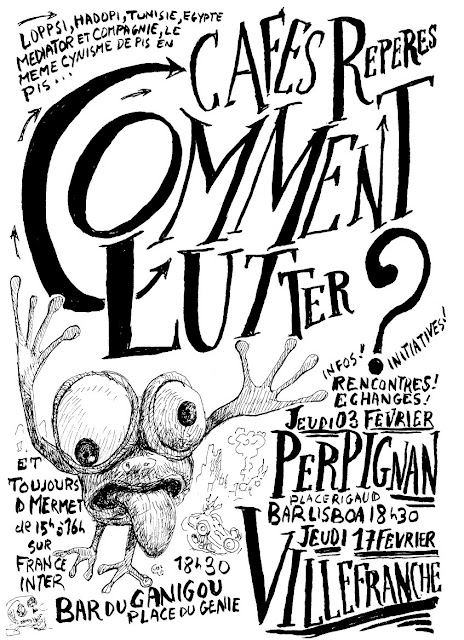 LOPPSI, HADOPI, TUNISIE, EGYPTE
MEDIATOR ET COMPAGNIE, LE
MEME CYNISME DE PIS EN
PIS...
CAFÉS REPERES
COMMENT
LUTTER ?
INFOS! INITIATIVES!
RENCONTRES!
ECHANGES!
JEUDI 03 FÉVRIER
PERPIGNAN
PLACE RIGAUD
BAR LISBOA 18h30
JEUDI 17 FÉVRIER
VILLEFRANCHE
18h30
BAR DU CANIGOU
PLACE DU GENIE
ET
TOUJOURS
D MERMET
de 15h à 16h
SUR
FRANCE
INTER